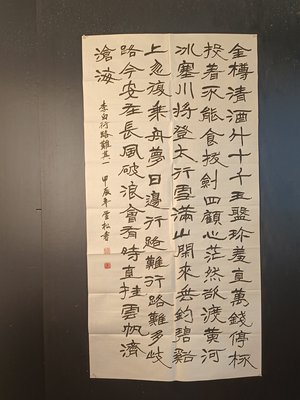 金樽清酒斗十千玉盤珍羞直萬錢停杯
投箸不能食拔劍四顧心茫然欲渡黃河
冰塞川將登太行雪滿山閒來垂釣碧谿
上忽復乘舟夢日邊行路難行路難多歧
路今安在長風破浪會有時直挂雲帆濟
滄海
李白行路難其一 甲辰年 松書